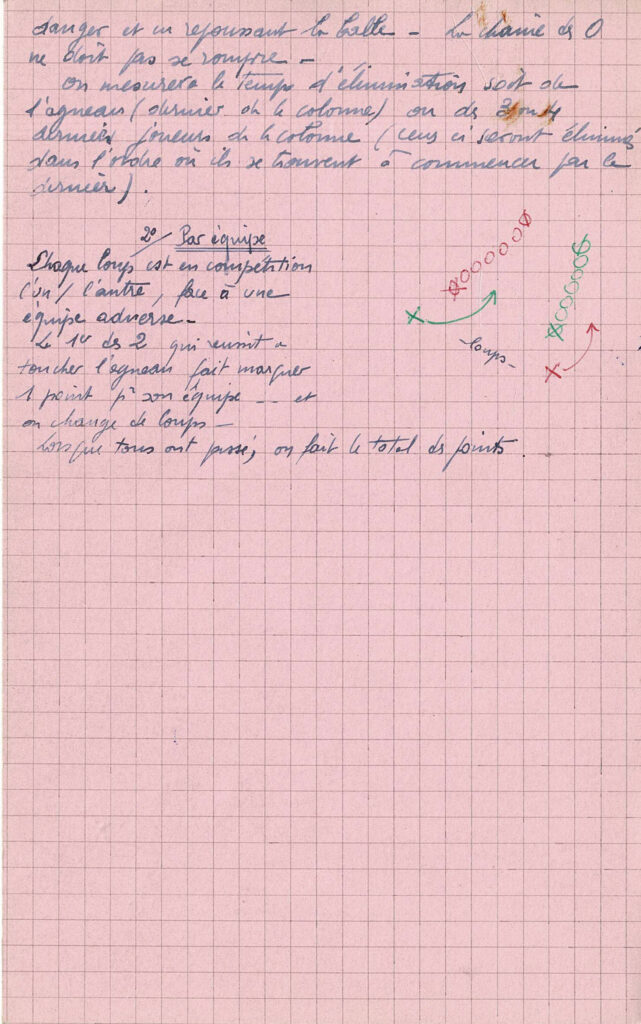 danger et en repoussant la balle - La chaine des O
ne doit pas se rompre -
on mesurera le temps d'élimination soit de
l'agneau (dernier de la colonne) ou des 3 ou 4
derniers joueurs de la colonne (ceux ci seront éliminés
dans l'ordre où ils se trouvent à commencer par le
dernier).
2°/ Par équipe
Chaque loup est en compétition
l'un / l'autre, face à une
équipe adverse -
Le 1er des 2 qui réussit a
toucher l'agneau fait marquer
1 point pr son équipe -- et
on change de loups -
Lorsque tous ont passé, on fait le total des points.
loups -